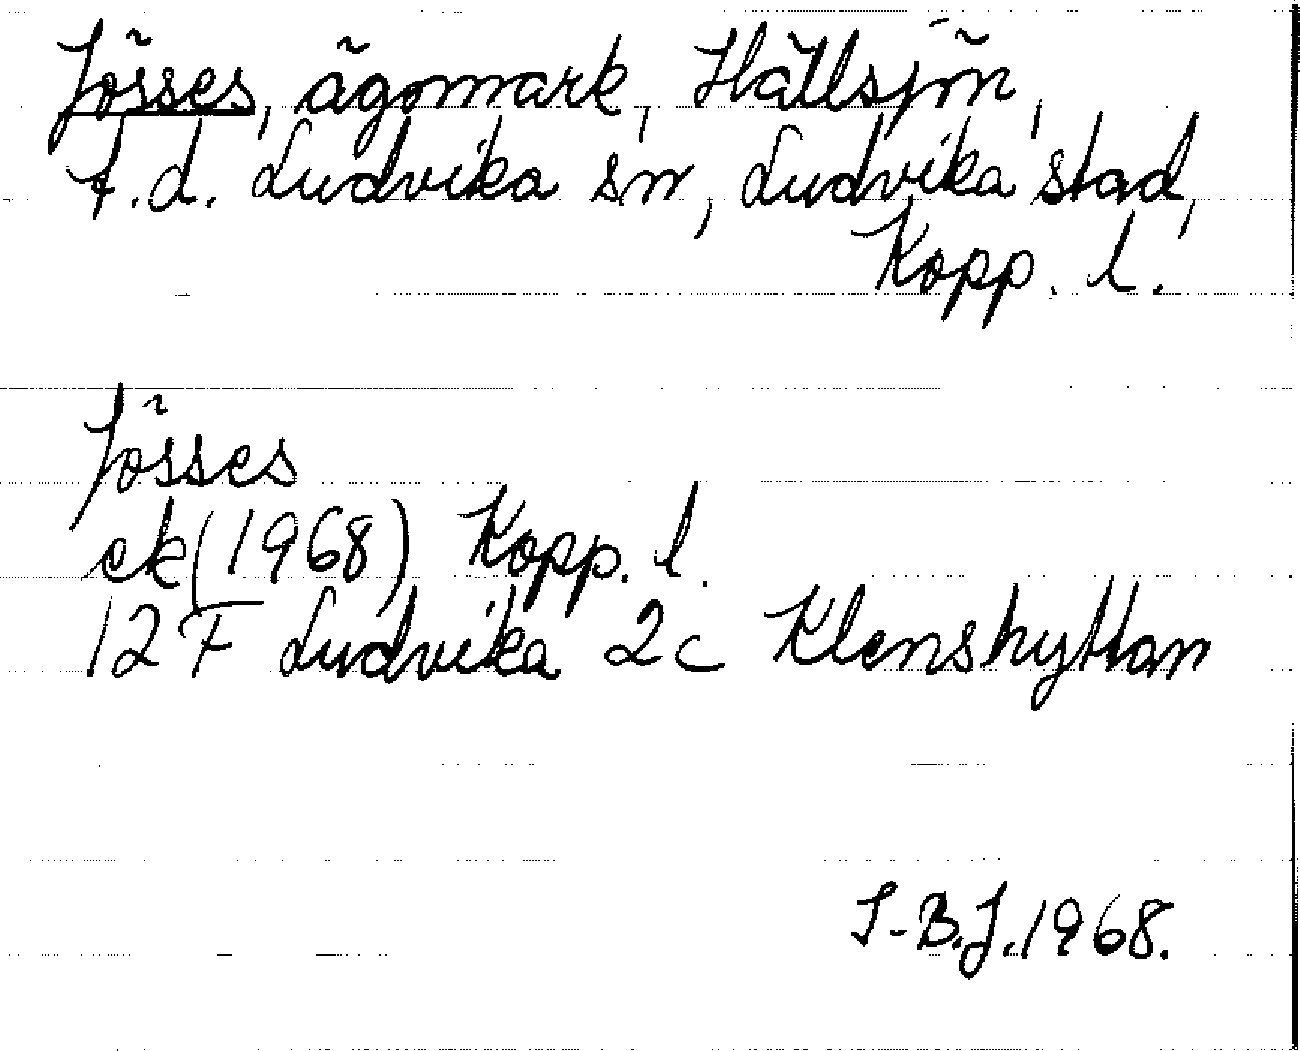 Jösses, ägomark, Hällsjön,
f.d. Ludvika sn, Ludvika stad,
Kopp. l.
Jösses
ek (1968) Kopp. l.
12 F Ludvika 2c Klenshyttan
I-B.J. 1968.